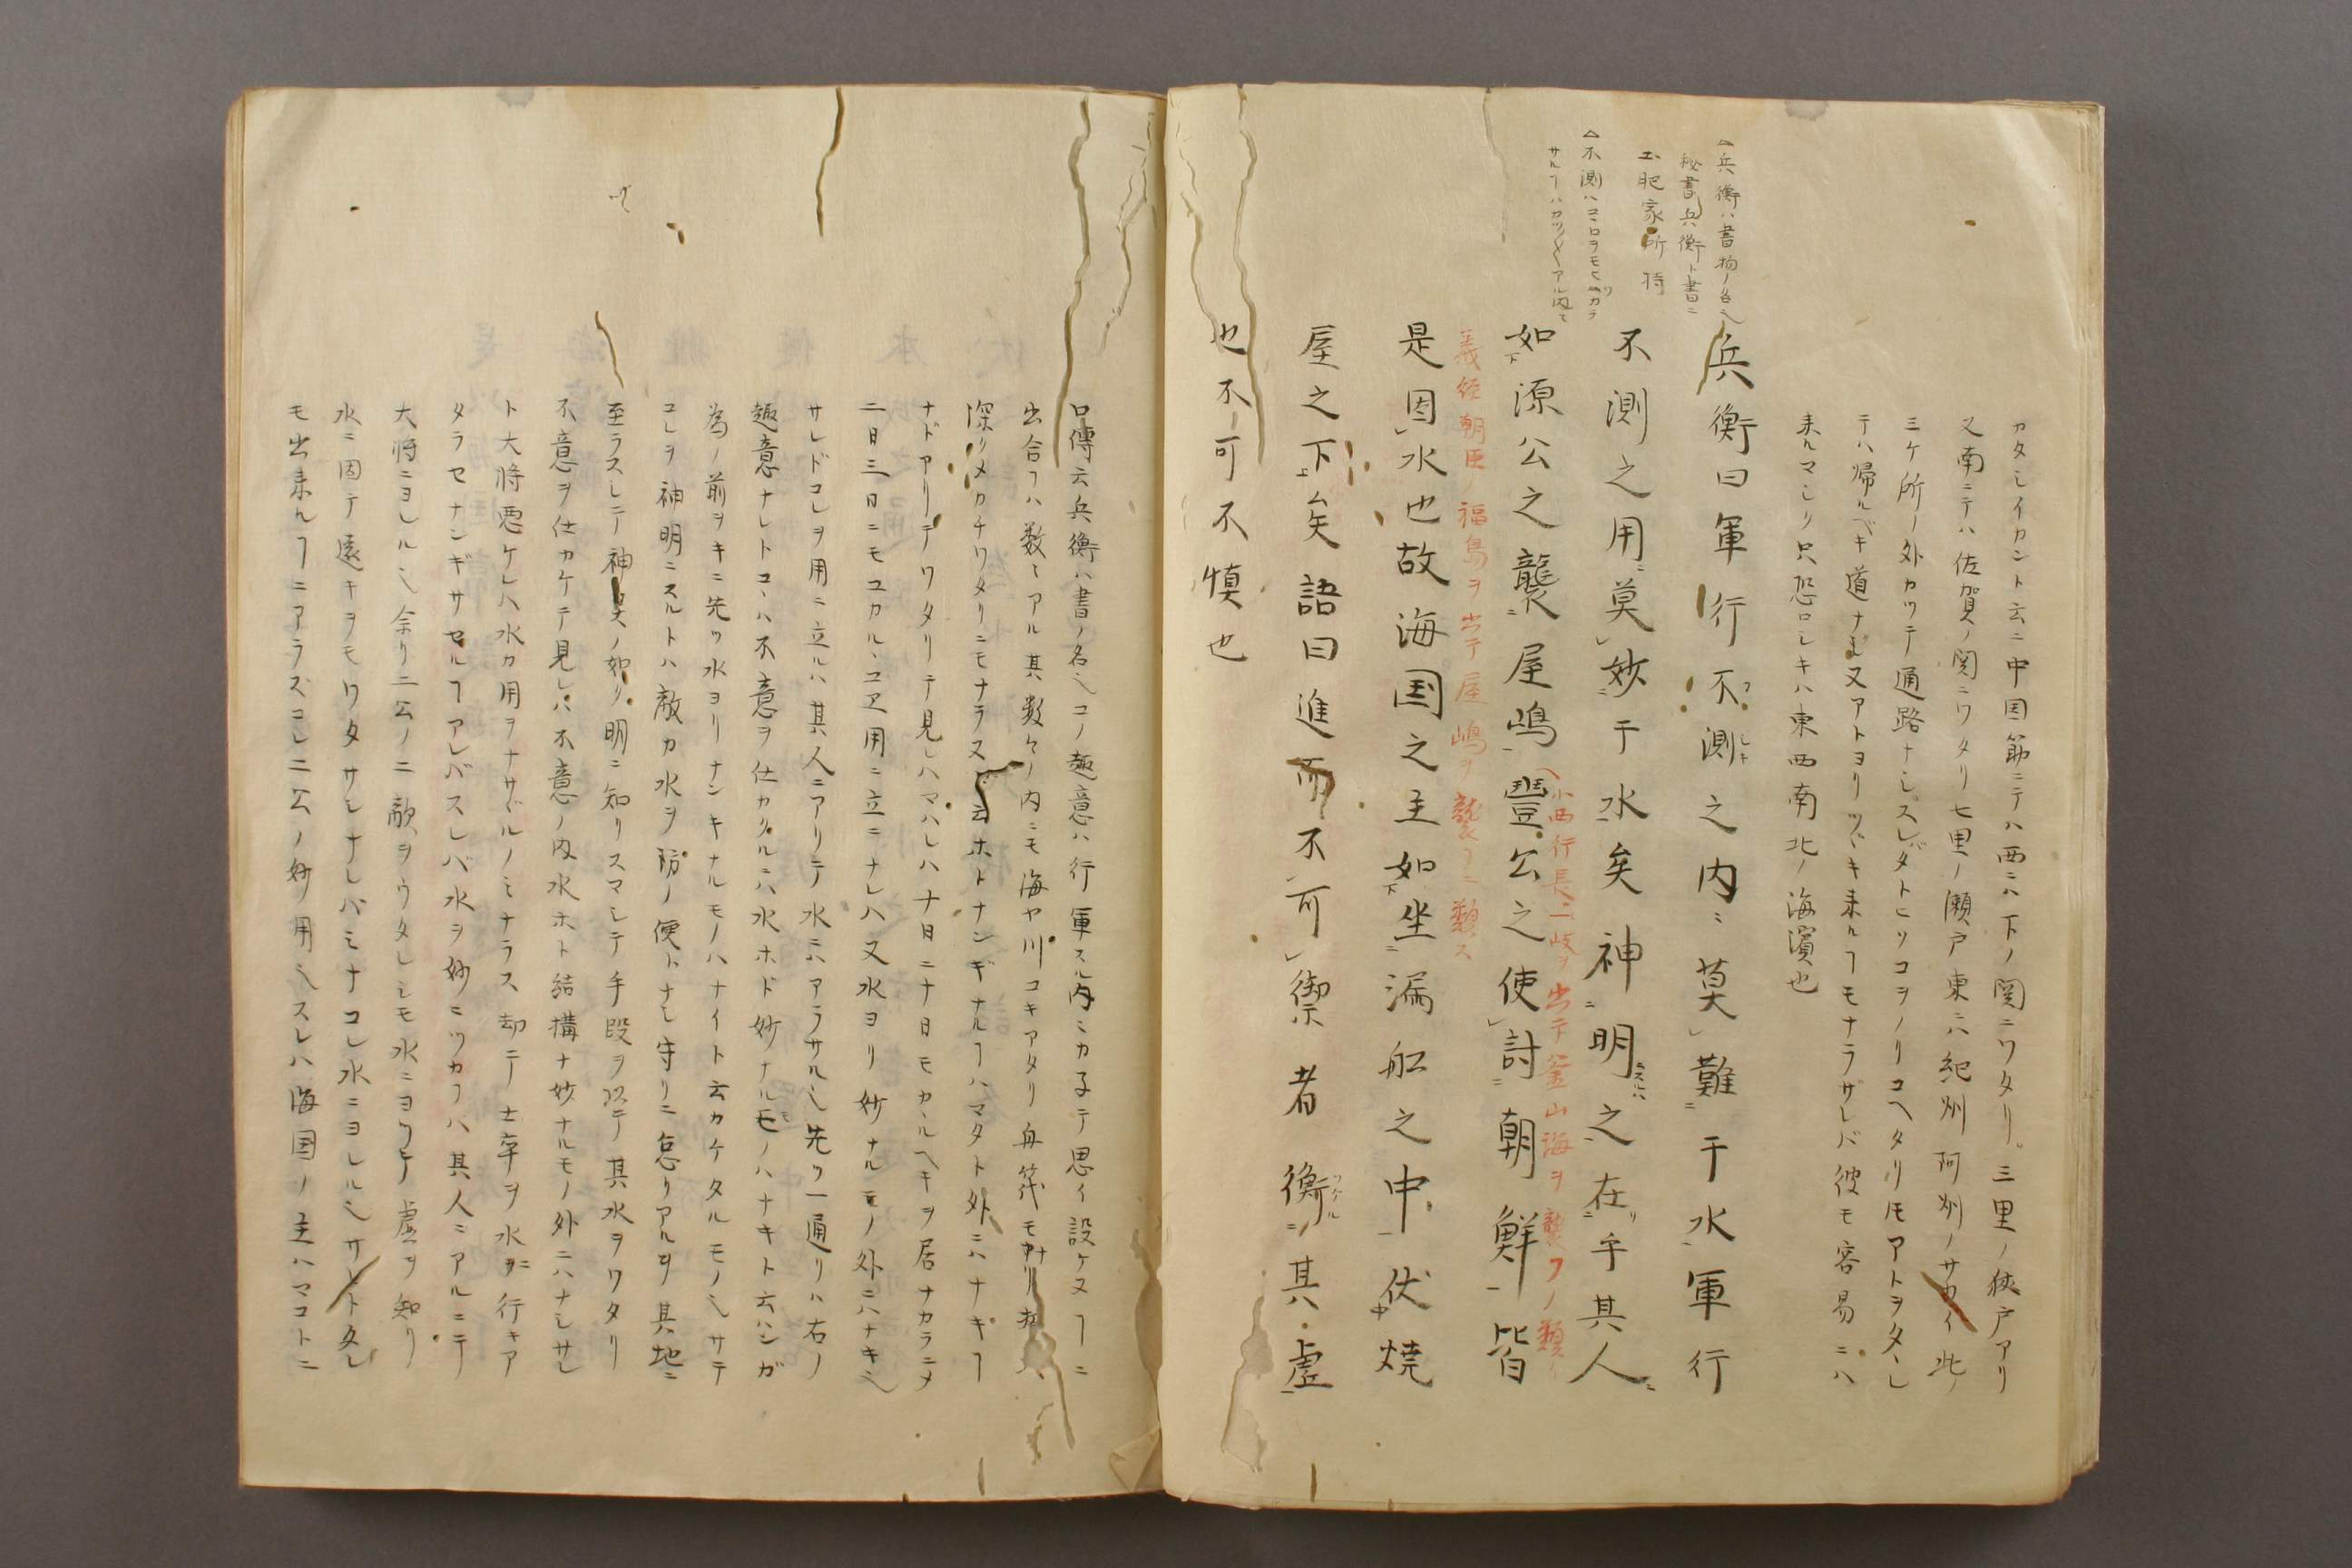 カタシイカント云ニ中国筋ニテハ西ニハ下ノ関ニワタリ三里ノ狭戸アリ
又南ニテハ佐賀ノ関ニワタリ七里ノ瀬戸東ニハ紀州阿州ノサカイ此ノ
三ケ所ノ外カツテ通路ナシスレバダトヒソコヲノリコヘタリ𪜈アトヲタヽレ
テハ帰ルベキ道ナシ又アトヨリツヾキ来ルヿモナラザレバ彼モ容易ニハ
来ルマシリ只恐ロシキハ東西南北ノ海濱也
△兵衡ハ書物ノ名也
秘書兵衡ト書ニ
土肥家所持
△不測ハコヽロヲモヒワカテ
サルヿハカツ〱アル内ニ
兵衡曰軍行不測之内莫難于水軍行
不測之用莫妙于水矣神明之在乎其人
如源公之襲屋嶋豐公之使討朝鮮皆
小西行長一岐ヲ出テ釜山海ヲ襲フノ類
義経朝臣ノ福島ヲ出テ屋嶋ヲ襲フニ類ス
是因水也故海国之主如坐漏舩之中伏焼
屋之下矣語曰進而不可禦者衡其虚
也不可不慎也
口傳云兵衡ハ書ノ名也コノ趣意ハ行軍スル内ニカ子テ思イ設ケヌヿニ
出合フハ数々アル其数々ノ内ニモ海ヤ川コキアタリ舟筏モナリ
深リメカチワタリニモナラスト云ホトナンギナルヿハマタト外ニハナキヿ
ナドアリテワタリテ見レハマハレハ十日ニ十日モカヽルヘキヲ居ナカラニメ
二日三日ニモユカルヽユヱ用ニ立ニナレハ又水ヨリ妙ナルモノ外ニハナキ也
サレドコレヲ用ニ立ルハ其人ニアリテ水ニハアラサル也先ツ一通リハ右ノ
趣意ナレトコヽハ不意ヲ仕カクルニハ水ホド妙ナルモノハナキト云ハンガ
為ノ前ヲキニ先ツ水ヨリナンキナルモノハナイト云カケタルモノ也サテ
コレヲ神明ニスルトハ敵カ水ヲ防ノ便トナシ守リニ怠リアルヲ其地ニ
至ラスシテ神ノ如ク明ニ知リスマシテ手段ヲ以テ其水ヲワタリ
不意ヲ仕カケテ見レバ不意ノ内水ホト結構ナ妙ナルモノ外ニハナシサレ
ト大将悪ケレハ水カ用ヲナサヾルノミナラス却テ士卒ヲ水ニ行キア
タラセナンギサセルヿアレバスレバ水ヲ妙ニツカフハ其人ニアルニテ
大将ニヨレル也余リ二公ノ二敵ヲウタレシモ水ニヨツテ虚ヲ知リ
水ニ因テ遠キヲモワタサレナレバミナコレ水ニヨレル也サレトタレ
モ出来ルヿニアラズコレ二公ノ妙用也スレハ海国ノ主ハマコトニ